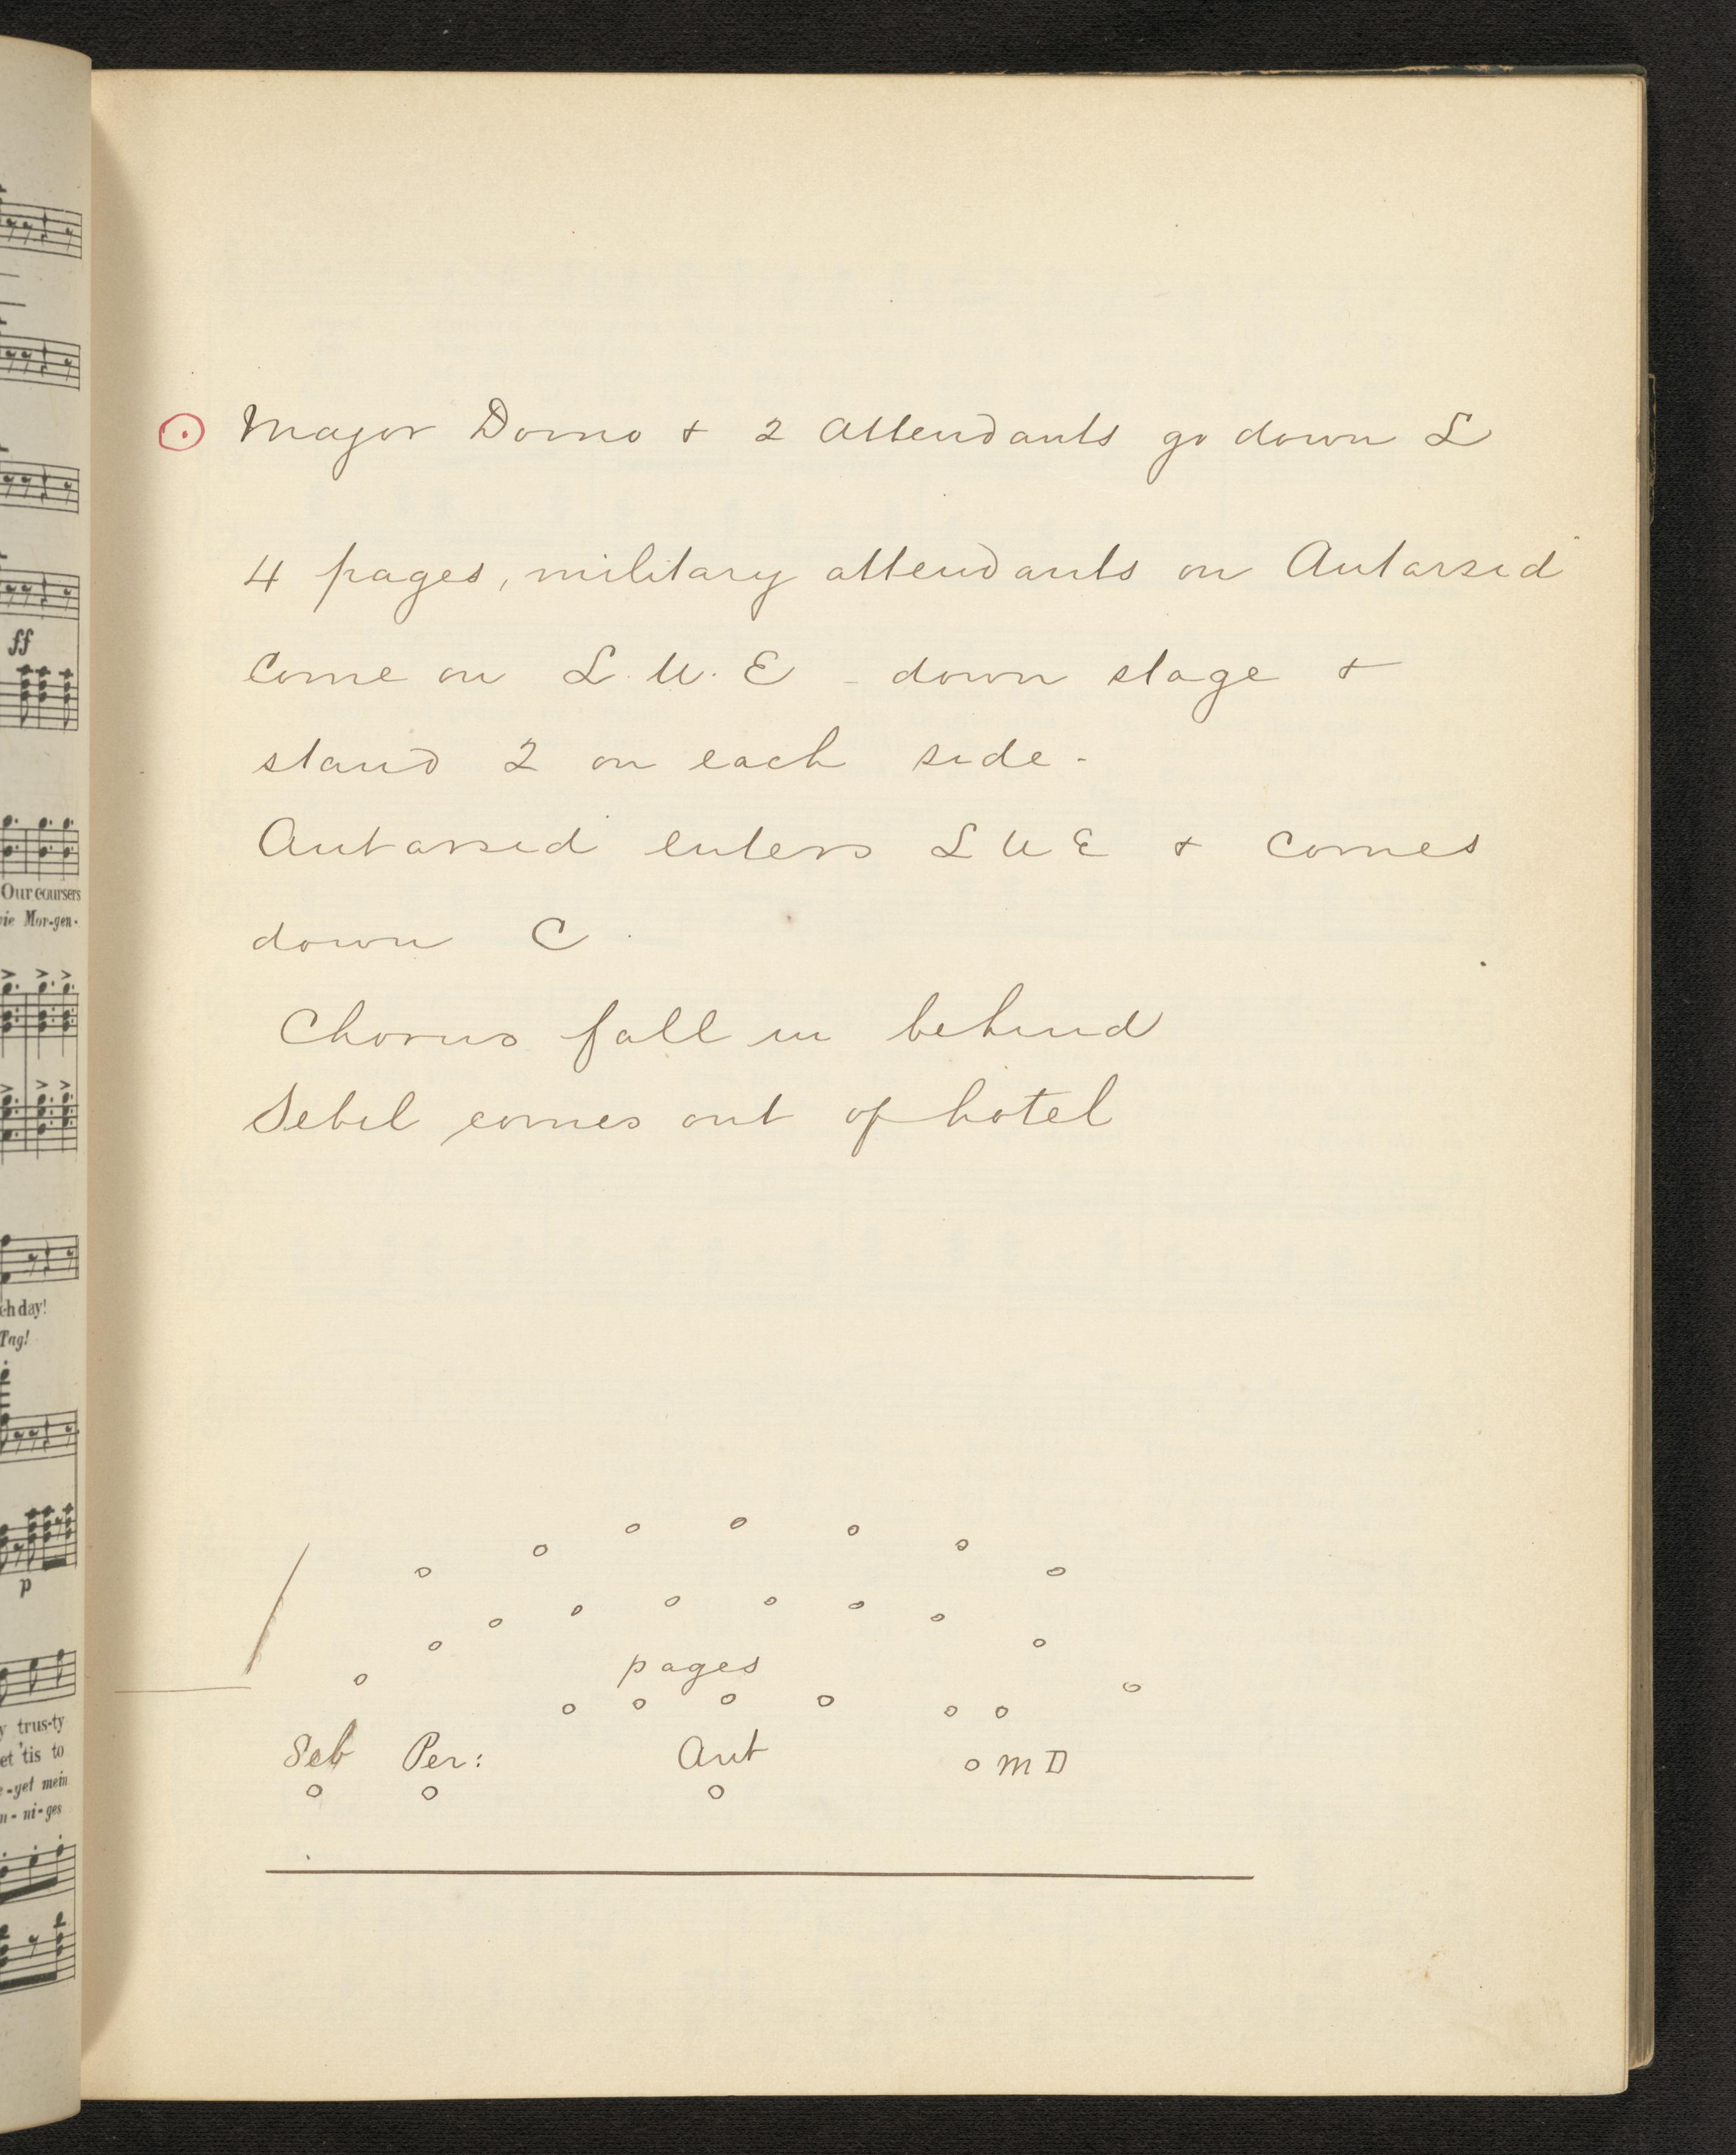 Major Domo + 2 attendants go down L
4 pages, military attendants on Antarsid
come on L.U.E - down stage +
stand 2 on each side -
Antarsid enters L U E + comes
down C.
Chorus fall in behind
Sebil comes out of hotel
pages
Seb Per: Ant M D
ff
Our coursers
vie Mor-gen-
ch day!
Tag!
p
y trus-ty
et 'tis to
e-yet mein
n-ni-ges